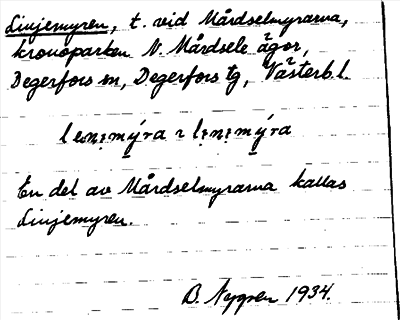 Linjemyren, t. vid Mårdselmyrarna,
kronoparken N. Mårdsele ägor,
Degerfors sn, Degerfors tg, Västerb. l.
En del av Mårdselmyrarna kallas
Linjemyren.
B. Nygren 1934.